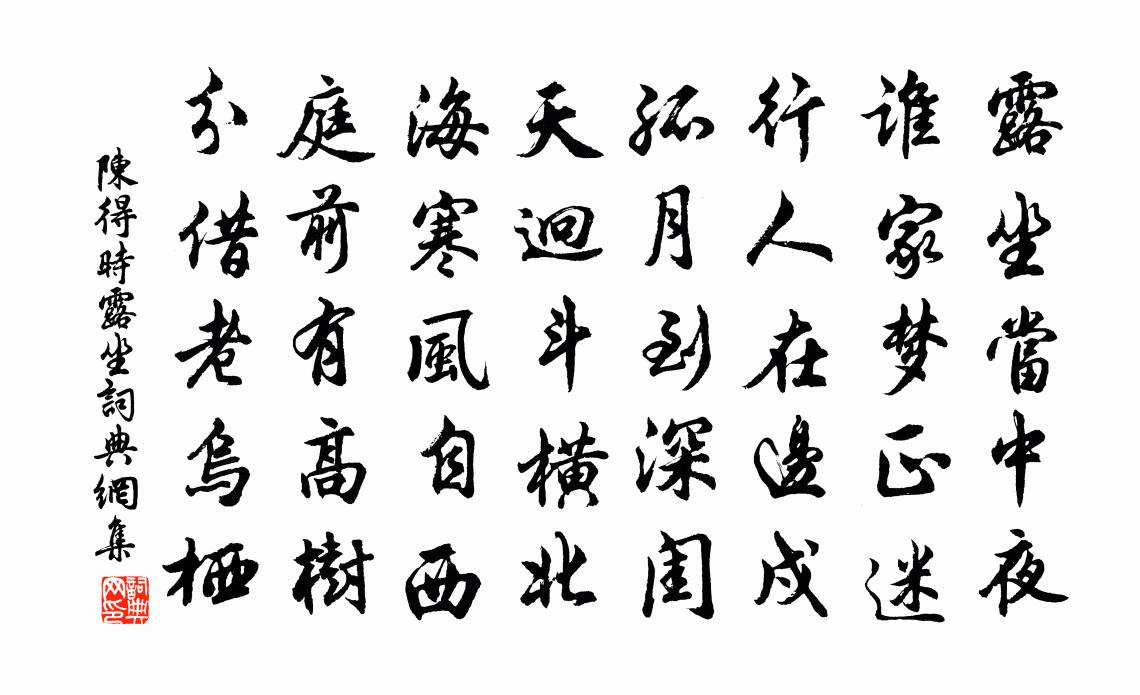 露坐當中夜
谁家梦正迷
行人在邊戍
孤月到深閨
天迥斗橫北
海寒風自西
庭前有高樹
分借老烏栖
陳得時露坐詞典網集
詞典网印